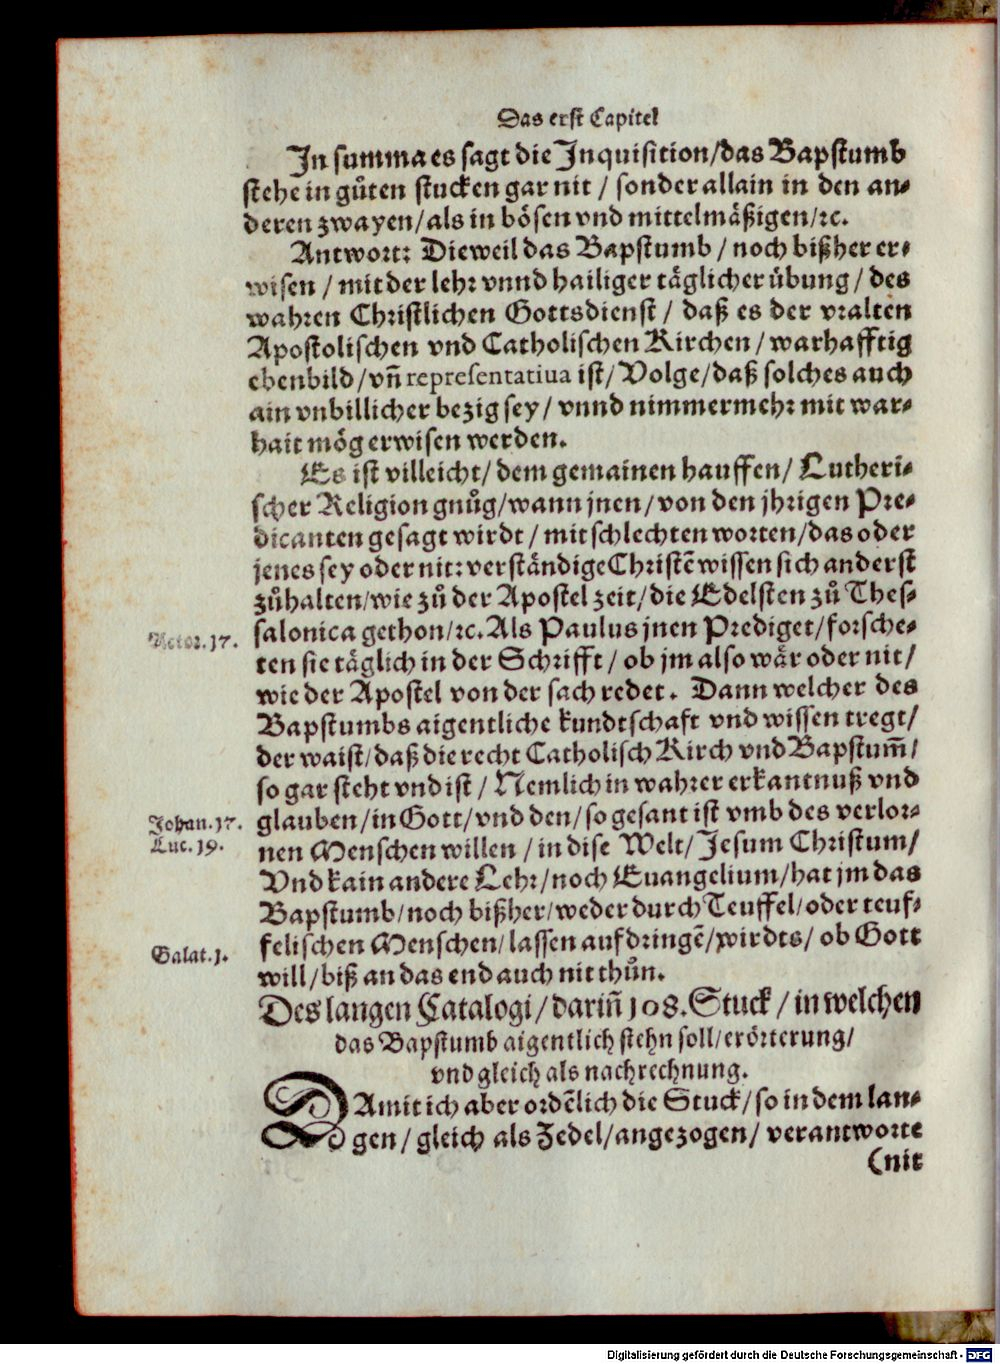 Das erst Capitel
In summa es sagt die Inquisition/das Bapstumb
stehe in gůten stucken gar nit / sonder allain in den an-
deren zwayen/als in bösen vnd mittelmäßigen/ꝛc.
Antwort: Dieweil das Bapstumb / noch bißher er-
wisen / mit der lehr vnnd hailiger täglicher übung / des
wahren Christlichen Gottsdienst / daß es der vralten
Apostolischen vnd Catholischen Kirchen / warhafftig
ebenbild/vñ representatiua ist/ Volge/daß solches auch
ain vnbillicher bezig sey / vnnd nimmermehr mit war-
hait mög erwisen werden.
Es ist villeicht/ dem gemainen hauffen/ Lutheri-
scher Religion gnůg/wann jnen/von den jhrigen Pre-
dicanten gesagt wirdt / mit schlechten worten/das oder
jenes sey oder nit: verständige Christē wissen sich anderst
zůhalten/wie zů der Apostel zeit/die Edelsten zů Thes-
Actor. 17.
salonica gethon/ꝛc. Als Paulus jnen Prediget/forsche-
ten sie täglich in der Schrifft / ob jm also wär oder nit/
wie der Apostel von der sach redet. Dann welcher des
Bapstumbs aigentliche kundtschaft vnd wissen tregt/
der waist/daß die recht Catholisch Kirch vnd Bapstum̄/
so gar steht vnd ist / Nemlich in wahrer erkantnuß vnd
Johan. 17.
glauben/in Gott/vnd den/so gesant ist vmb des verlor-
Luc. 19.
nen Menschen willen / in dise Welt/ Jesum Christum/
Vnd kain andere Lehr/noch Euangelium/hat jm das
Bapstumb/noch bißher/weder durch Teuffel/oder teuf-
felischen Menschen/lassen aufdringē/wirdts/ ob Gott
Galat. 1.
will/biß an das end auch nit thůn.
Des langen Catalogi / dariñ 108. Stuck / in welchen
das Bapstumb aigentlich stehn soll/erörterung/
vnd gleich als nachrechnung.
DAmit ich aber ordēlich die Stuck/so in dem lan-
gen / gleich als Zedel/angezogen/ verantworte
(nit
Digitalisierung gefördert durch die Deutsche Forschungsgemeinschaft - DFG